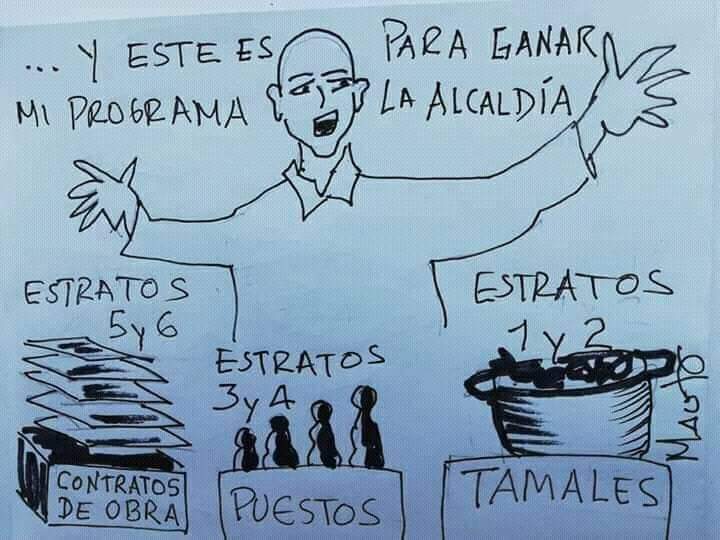 ... Y ESTE ES PARA GANAR
MI PROGRAMA LA ALCALDÍA
ESTRATOS
5 y 6
ESTRATOS
3 y 4
ESTRATOS
1 y 2
CONTRATOS
DE OBRA
PUESTOS
TAMALES